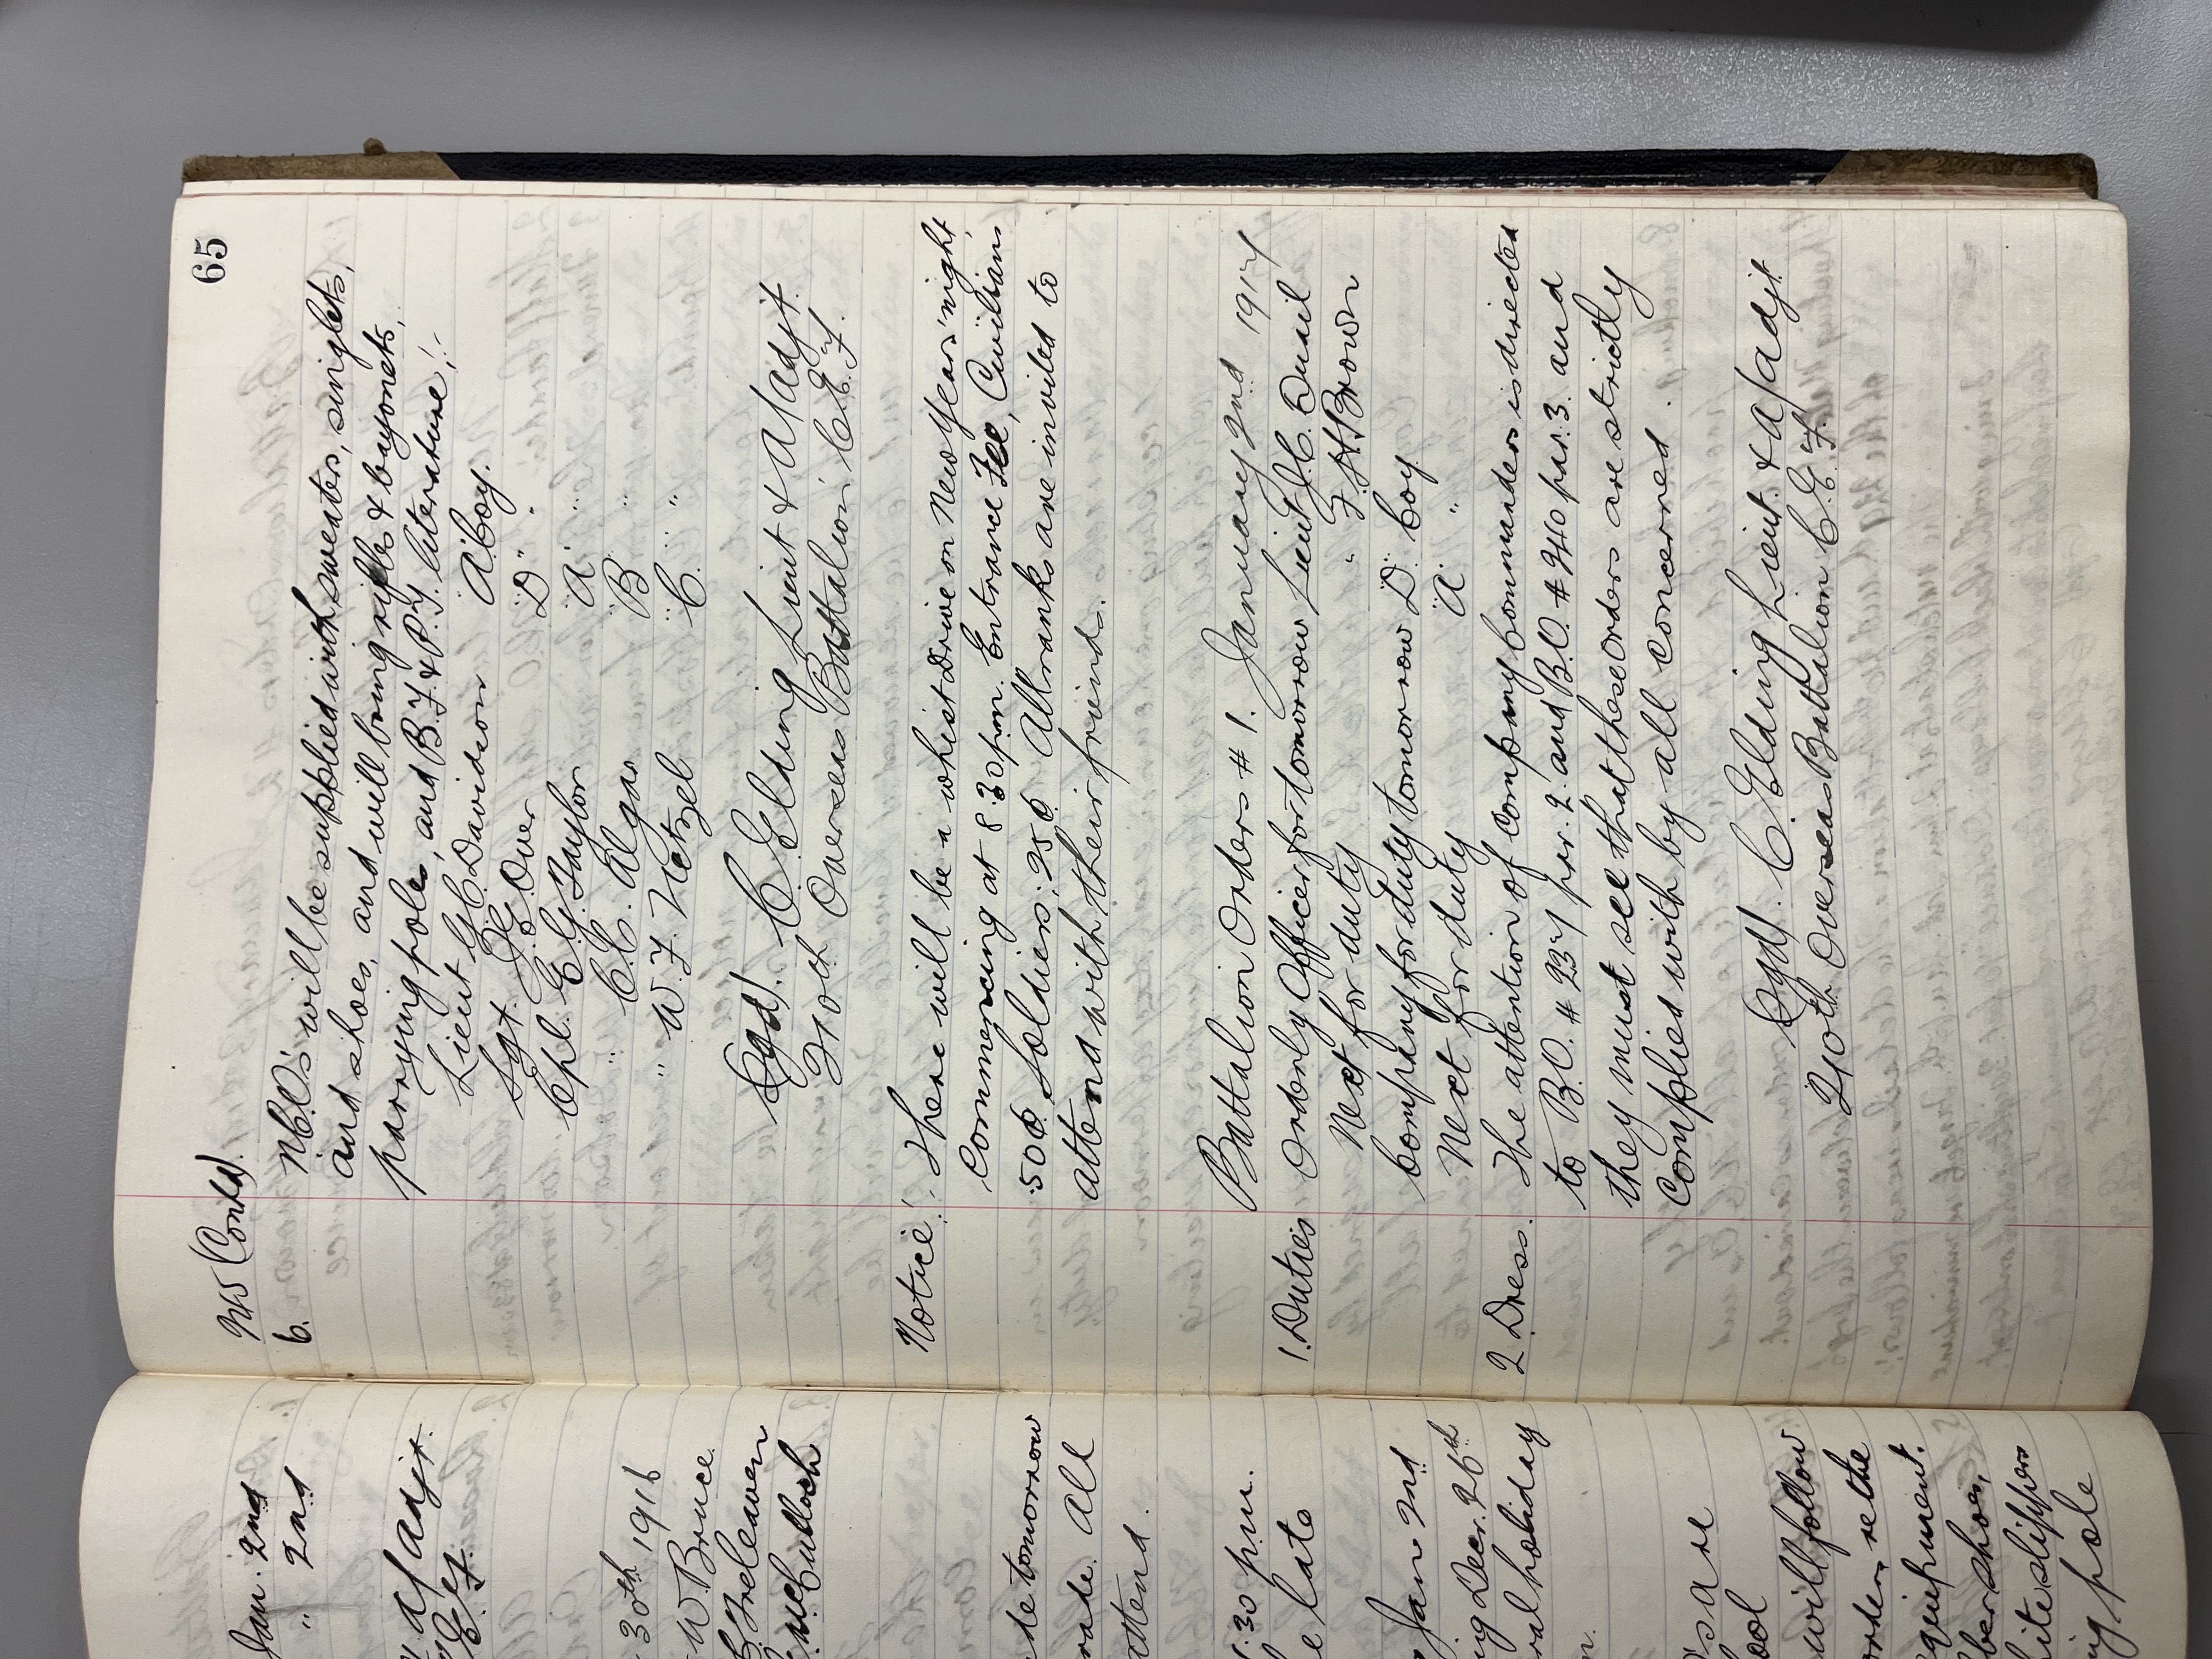 65
245 (Contd).
6. N.C.O's will be supplied with sweaters, singlets,
and shoes, and will bring rifles & bayonets,
parrying poles, and B.F. & P.T. literature:-
Lieut G C Davidson "A" Coy.
Sgt. Over "D" "
Cpl. E G Taylor "A" "
" C C. Algar "B" "
" W. F. Vetzel "C" "
(Sgd). C Elding Lieut & A/Adjt.
210th Overseas Battalion C.E.F.
Notice:- There will be a whist Drive on New Years' night,
Commencing at 8.30 p.m. Entrance Fee, Civilians
50¢ Soldiers, 25¢. All ranks are invited to
attend with their friends.
Battalion Orders # 1. January 2nd 1917
1. Duties Orderly Officer for tomorrow Lieut J.C. Quail
Next for duty " F.H. Brown
Company for duty tomorrow "D" Coy.
Next for duty "A" "
2. Dress. The attention of Company Commanders is directed
to B.O. # 237 par. 2 and B.O. # 240 par. 3. and
they must see that these orders are strictly
complied with by all concerned.
(Sgd). C. Elding Lieut. & A/Adjt
210th Overseas Battalion C.E.F.
Jan. 2nd
" 2nd
A/Adjt.
C.E.F.
30th 1916
W Bruce
Treleaven
McCulloch
de tomorrow
rade. All
attend.
1.30 p.m.
e late
Jan 2nd
ng Decr. 26th
ral holiday
n.
's are
ool
will follow
orders re the
equipment.
ber shoes,
hite slippers
ing pole